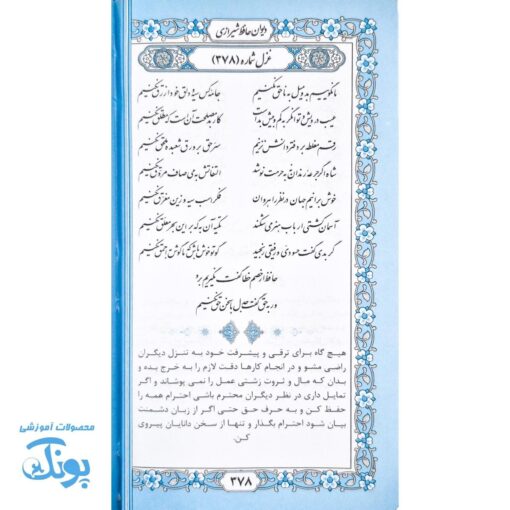 دیوان حافظ شیرازی
غزل شماره (۳۷۸)
ما نگوییم بد و میل به ناحق نکنیم
جامه کس سیه و دلق خود ازرق نکنیم
عیب درویش و توانگر به کم و بیش بد است
کار بد مصلحت آن است که مطلق نکنیم
رقم مغلطه بر دفتر دانش نزنیم
سر حق بر ورق شعبده ملحق نکنیم
شاه اگر جرعه رندان نه به حرمت نوشد
التفاتش به می صاف مروق نکنیم
خوش برانیم جهان در نظر راهروان
فکر اسب سیه و زین مغرق نکنیم
آسمان کشتی ارباب هنر می‌شکند
تکیه آن به که بر این بحر معلق نکنیم
گر بدی گفت حسودی و رفیقی رنجید
گو تو خوش باش که ما گوش به احمق نکنیم
حافظ ار خصم خطا گفت نگیریم بر او
ور به حق گفت جدل با سخن حق نکنیم
هیچ گاه برای ترقی و پیشرفت خود به تنزل دیگران
راضی مشو و در انجام کارها دقت لازم را به خرج بده و
بدان که مال و ثروت زشتی عمل را نمی پوشاند و اگر
تمایل داری در نظر دیگران محترم باشی احترام همه را
حفظ کن و به حرف حق حتی اگر از زبان دشمنت
بیان شود احترام بگذار و تنها از سخن دانایان پیروی
کن.
۳۷۸
محصولات آموزشی
پونک